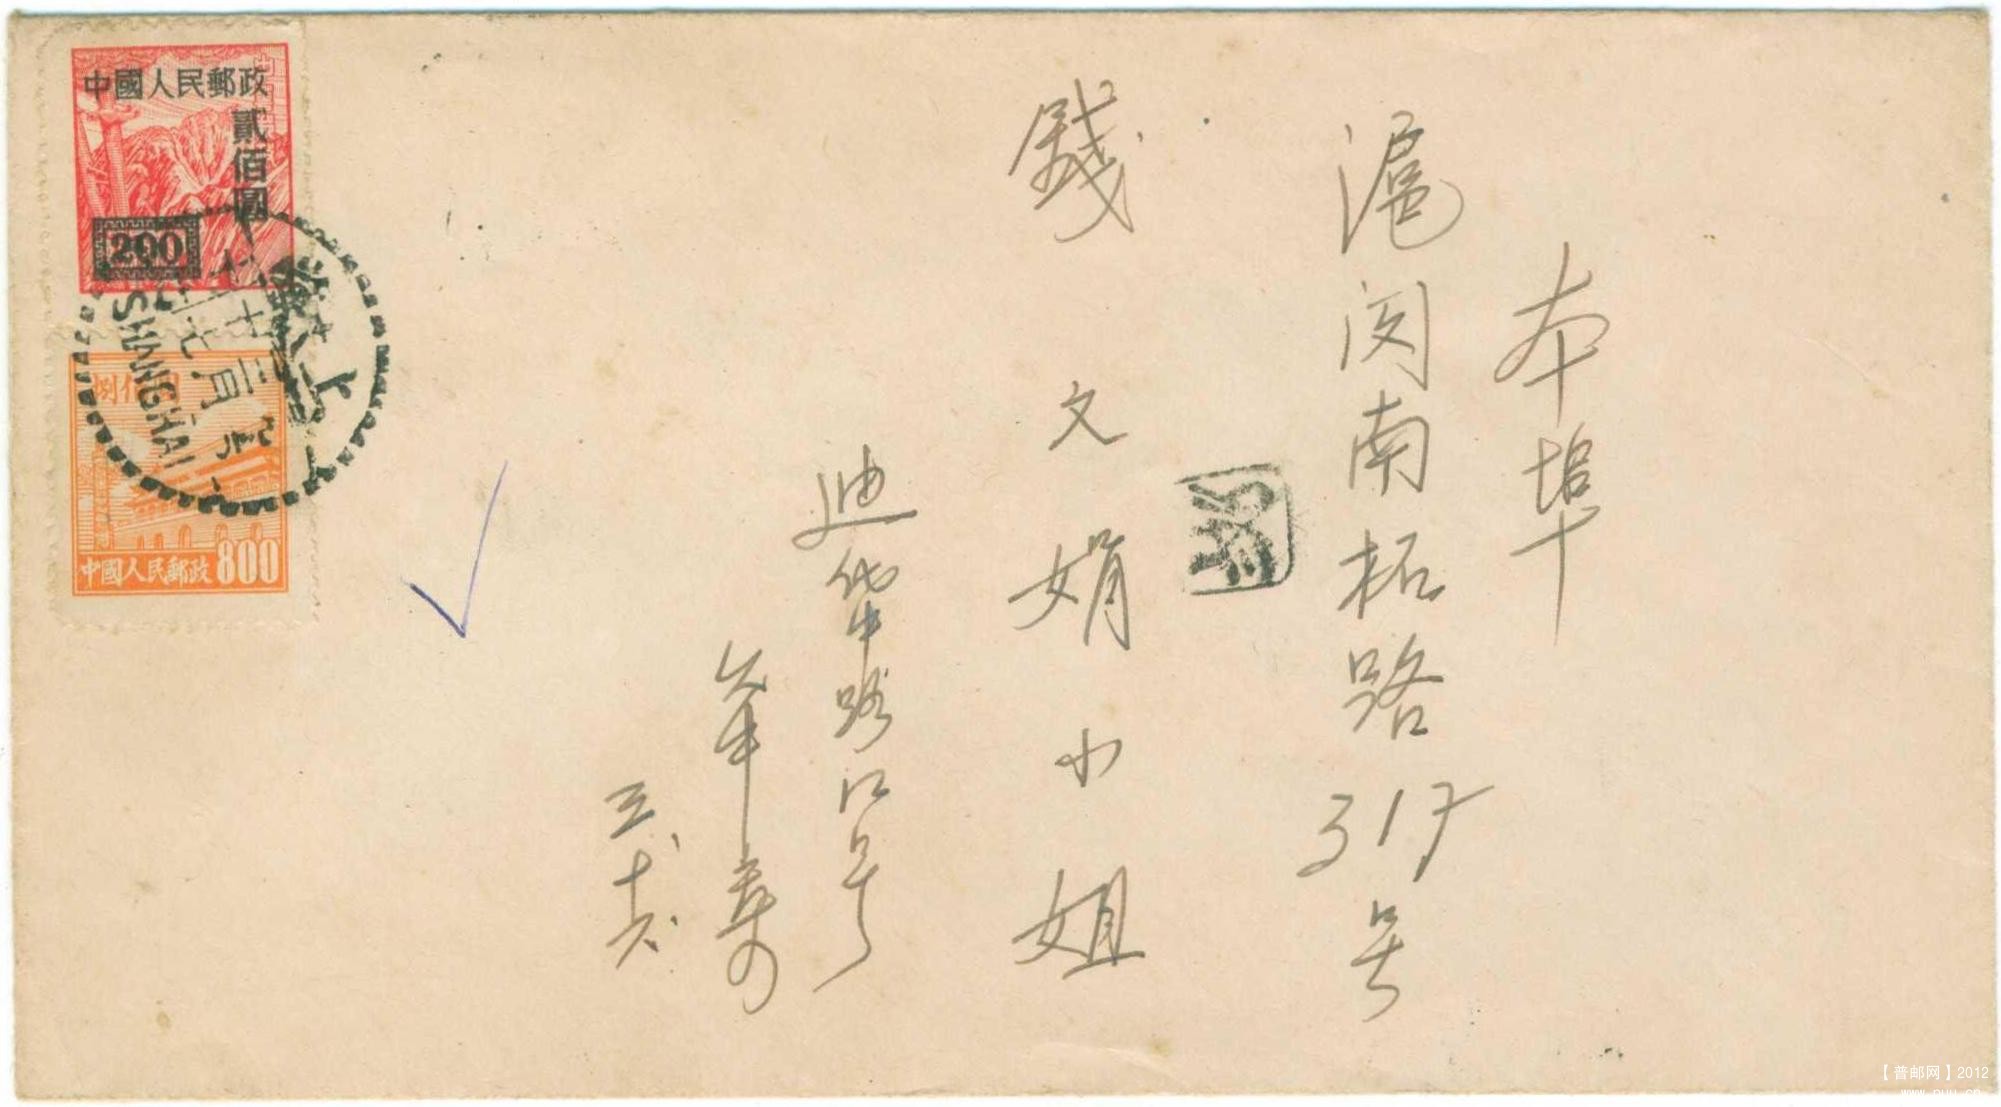 本埠
滬閔南柘路317号
錢文娟小姐
迪化中路
三、十六、
中國人民郵政
貳佰圓
200
捌佰圓
中國人民郵政 800
上海
SHANGHAI
【普邮网】2012